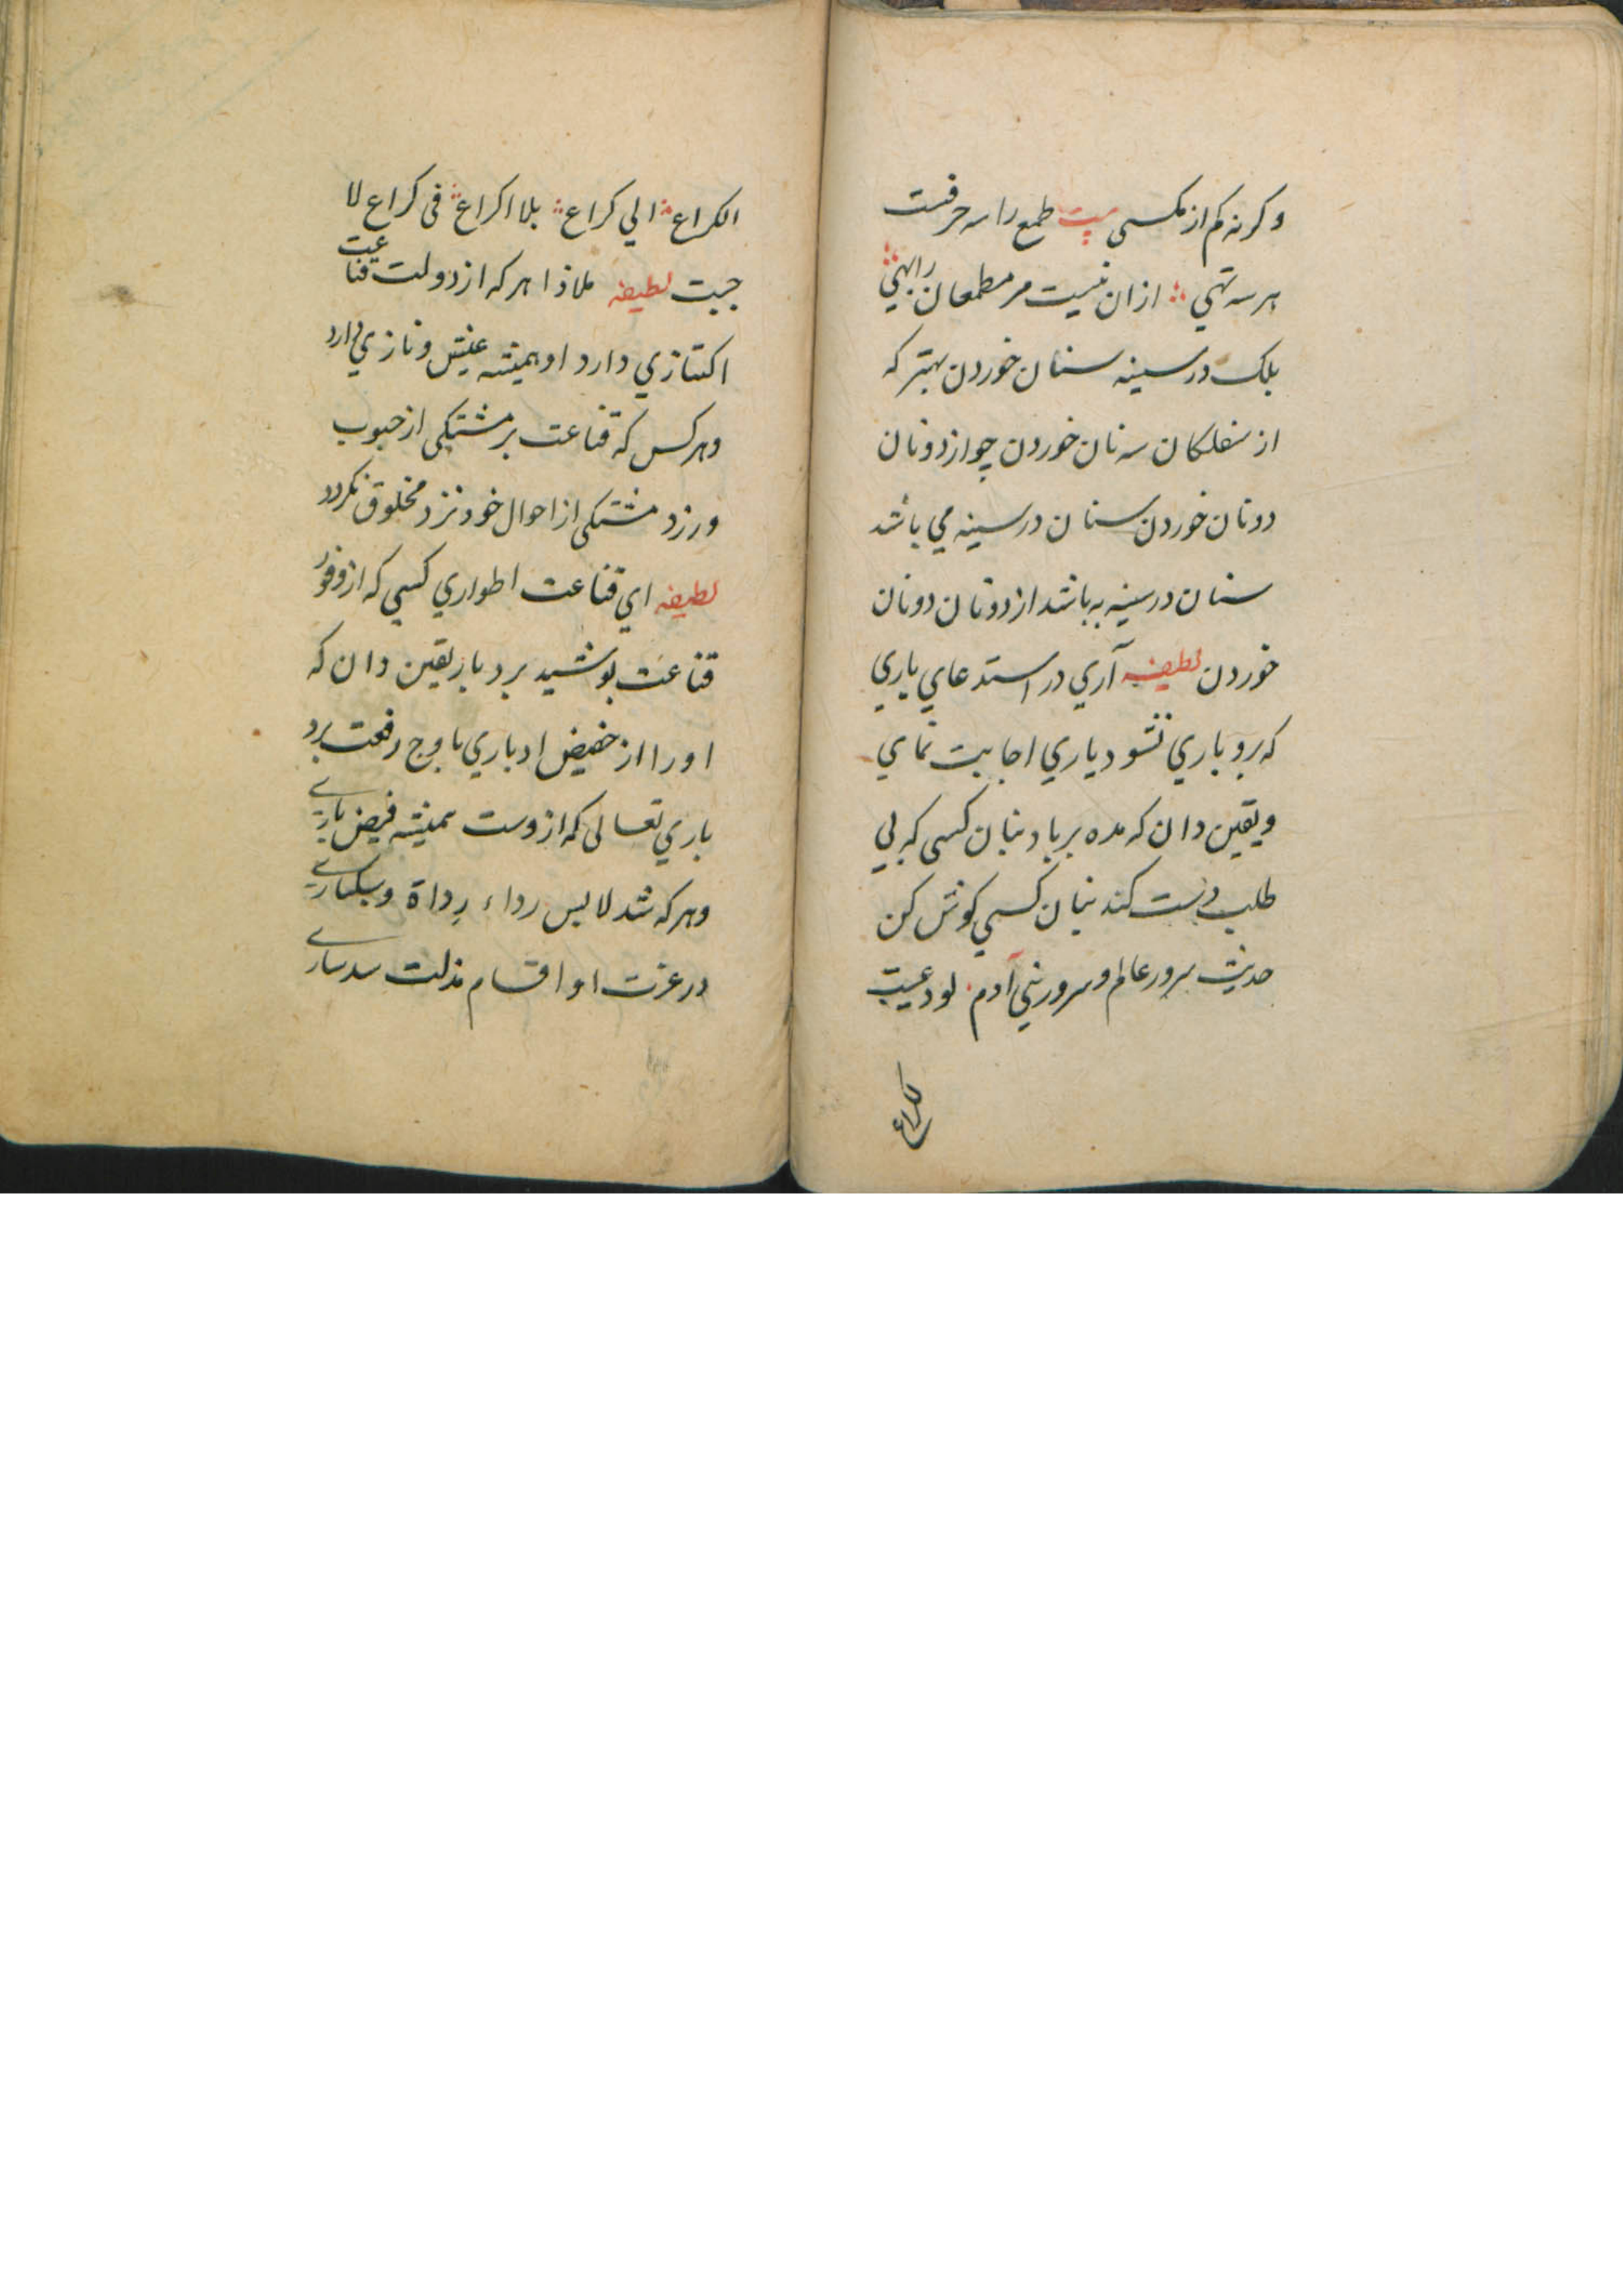 وکرنه کم از مکسی بیت طمع را سه حرفست
هر سه تهی ازان نیست مر مطمعان را بهی
بلک در سینه سنان خوردن بهتر که
از سفلکان سه نان خوردن چو از دونان
دونان خوردن سنان در سینه می باشد
سنان در سینه به باشد از دونان دونان
خوردن لطیفه آری در استدعای یاری
که برو باری نشود یاری اجابت نمای
و یقین دان که مده بر باد بنیان کسی که بی
طلب دست کند بنیان کسی کوش کن
حدیث سرور عالم و سرور بنی آدم لو دعیت
الکراع
الکراع الی کراع بلا اکراع فی کراع لا
جبت لطیفه ملاذا هر که از دولت قناعت
اکتنازی دارد او همیشه عیش و نازی دارد
و هر کس که قناعت بر مشتکی از حبوب
ورزد مشتکی از احوال خود نزد مخلوق نکردد
لطیفه ای قناعت اطواری کسی که از وفور
قناعت پوشید برد بار یقین دان که
او را از حضیض ادباری باوج رفعت برد
باری تعالی که از وست همیشه فیض باری
و هر که شد لابس رداء رداة و سبکساری
در عزت او اقسام مذلت سدساری